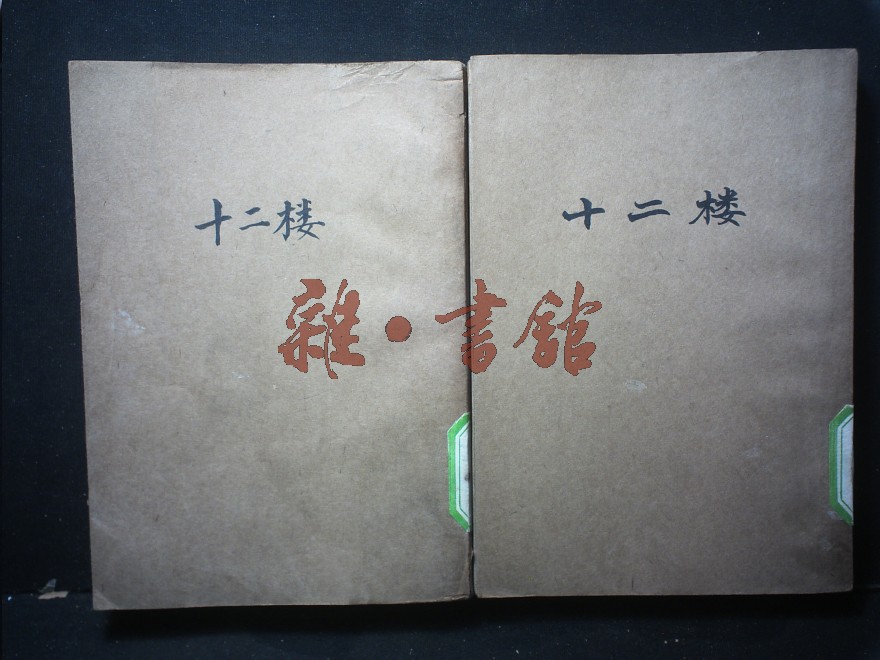 十二楼
十二楼
雜·書館